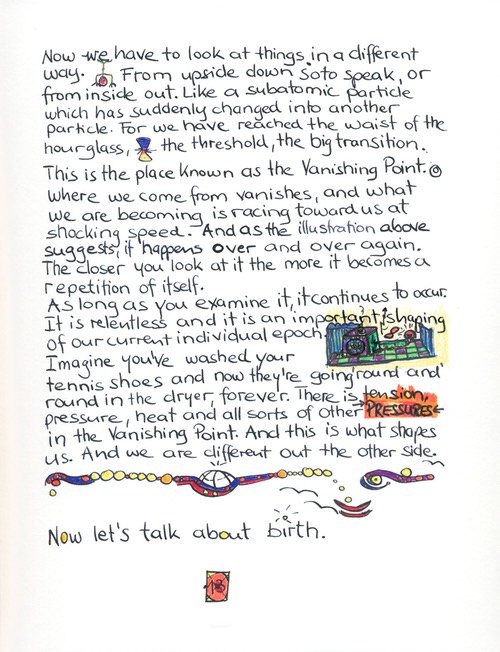 Now we have to look at things in a different
way. From upside down so to speak, or
from inside out. Like a subatomic particle
which has suddenly changed into another
particle. For we have reached the waist of the
hourglass, the threshold, the big transition.
This is the place known as the Vanishing Point.
Where we come from vanishes, and what
we are becoming is racing toward us at
shocking speed. And as the illustration above
suggests, it happens over and over again.
The closer you look at it the more it becomes a
repetition of itself.
As long as you examine it, it continues to occur.
It is relentless and it is an important shaping
of our current individual epoch.
Imagine you've washed your
tennis shoes and now they're going round and
round in the dryer, forever. There is tension,
pressure, heat and all sorts of other PRESSURES
in the Vanishing Point. And this is what shapes
us. And we are different out the other side.
Now let's talk about birth.
18